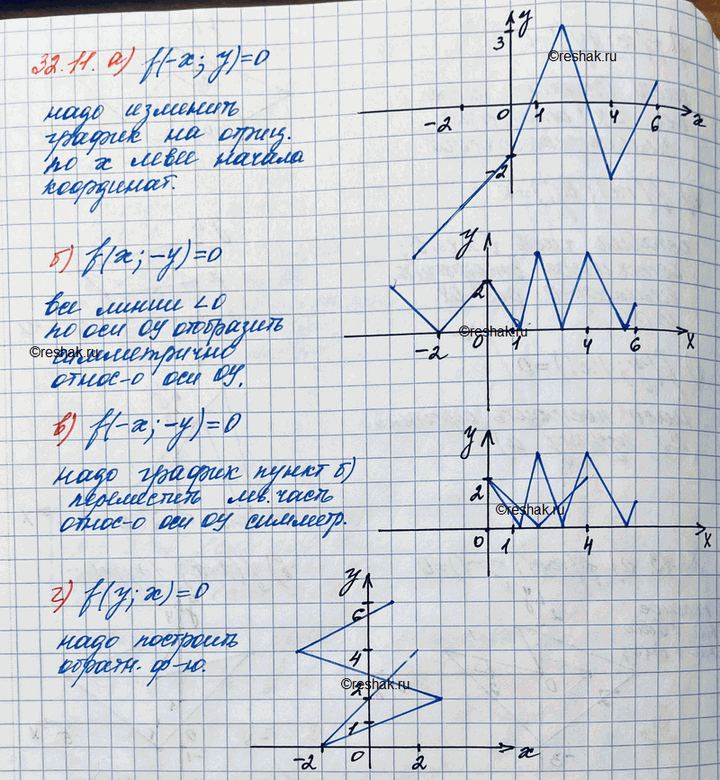 32.11. а) f(-x; y)=0
надо изменить
график на отриц.
по x левее начала
координат.
y
3
©reshak.ru
-2 0 1 4 6 x
-2
б) f(x; -y)=0
все линии <0
по оси OY отобразить
©reshak.ru
симметрично
относ-о оси OY.
y
2
©reshak.ru
-2 0 1 4 6 x
в) f(-x; -y)=0
надо график пункт б)
переместить лев. часть
относ-о оси OY симметр.
y
2
©reshak.ru
0 1 4 x
г) f(y; x)=0
надо построить
обратн. ф-ю.
y
6
4
©reshak.ru
2
1
-2 0 2 x